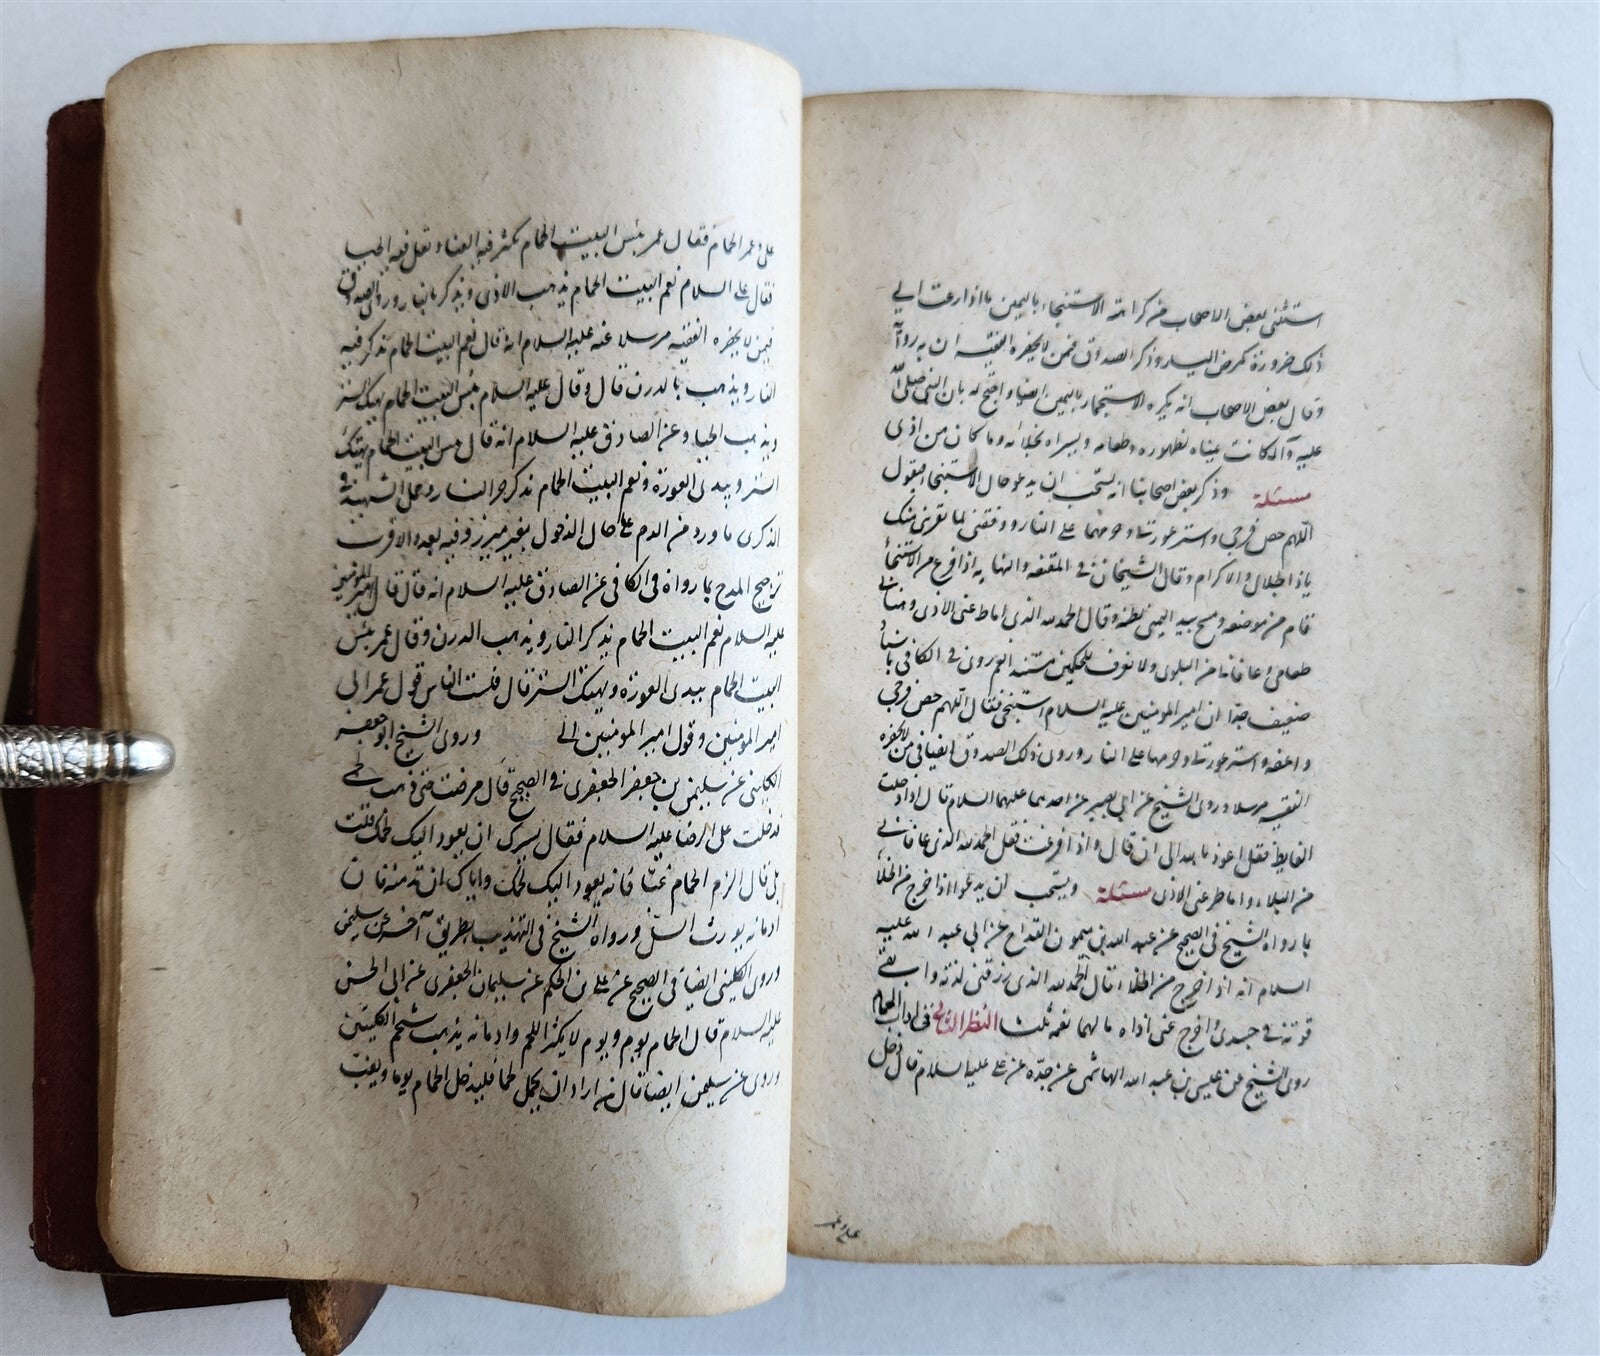 استثنى بعض الاصحاب من كراهة الاستنجاء باليمين ما اذا دعت الى
ذلك ضرورة كمرض اليسار وذكر الصدوق فيمن لا يحضره الفقيه ان به رواية
وقال بعض الاصحاب انه يكره الاستجمار باليمين ايضا واحتج له بان النبي صلى الله
عليه وآله كانت يمناه لطهوره وطعامه ويسراه لخلائه وما كان من اذى
مسئلة وذكر بعض اصحابنا انه يستحب ان يدعو حال الاستنجاء فيقول
اللهم حصن فرجي واستر عورتي وحرمهما على النار ووفقني لما يقربني منك
ياذا الجلال والاكرام وقال الشيخان في المقنعة والنهاية اذا فرغ من الاستنجاء
قام من موضعه ومسح بيده اليمنى بطنه وقال الحمد لله الذي اماط عني الاذى وهنأني
طعامي وعافاني من البلوى ولا نعرف للحكمين مستندا نعم روى في الكافي باسناد
ضعيف جدا ان امير المؤمنين عليه السلام استنجى فقال اللهم حصن فرجي
واعفه واستر عورتي وحرمها على النار وروى ذلك الصدوق ايضا في من لا يحضره
الفقيه مرسلا وروى الشيخ عن ابي بصير عن احدهما عليهما السلام قال اذا دخلت
الغايط فقل اعوذ بالله الى ان قال واذا فرغت فقل الحمد لله الذي عافاني
من البلاء واماط عني الاذى مسئلة ويستحب ان يدعو اذا خرج من الخلاء
بما رواه الشيخ في الصحيح عن عبد الله بن ميمون القداح عن ابي عبد الله عليه
السلام انه اذا خرج من الخلاء قال الحمد لله الذي رزقني لذته وابقى
قوته في جسدي واخرج عني اذاه يا لها نعمة ثلثا النظر الثاني في اداب الحمام
روى الشيخ عن عيسى بن عبد الله الهاشمي عن جده عن علي عليه السلام قال دخل
علي وعمر
علي وعمر الحمام فقال عمر بئس البيت الحمام يكثر فيه العناء ويقل فيه الحياء
فقال علي السلام نعم البيت الحمام يذهب الاذى ويذكر بالنار وروى الصدوق
فيمن لا يحضره الفقيه مرسلا عنه عليه السلام انه قال نعم البيت الحمام تذكر فيه
النار ويذهب بالدرن قال وقال عليه السلام بئس البيت الحمام يهتك الستر
ويذهب الحياء وعن الصادق عليه السلام انه قال بئس البيت الحمام يهتك
الستر ويبدي العورة ونعم البيت الحمام يذكر حر النار وحمل الشهيد في
الذكرى ما ورد من الذم على حال الدخول بغير ميزر وفيه بعد والاقرب
ترجيح المدح بما رواه في الكافي عن الصادق عليه السلام انه قال قال امير المؤمنين
عليه السلام نعم البيت الحمام يذكر النار ويذهب الدرن وقال عمر بئس
البيت الحمام يبدي العورة ويهتك الستر قال فنسب الناس قول عمر الى
امير المؤمنين وقول امير المؤمنين الى وروى الشيخ ابو جعفر
الكليني عن سليمن بن جعفر الجعفري في الصحيح قال مرضت حتى ذهب لحمي
فدخلت على الرضا عليه السلام فقال يسرك ان يعود اليك لحمك قلت
بلى قال الزم الحمام غبا فانه يعود اليك لحمك واياك ان تدمنه فان
ادمانه يورث السل ورواه الشيخ في التهذيب بطريق آخر عن سليمن
وروى الكليني ايضا في الصحيح عن علي بن الحكم عن سليمان الجعفري عن ابي الحسن
عليه السلام قال الحمام يوم ويوم لا يكثر اللحم وادمانه يذهب شحم الكليتين
وروى عن سليمن ايضا قال من اراد ان يحمل لحما فليدخل الحمام يوما ويغب